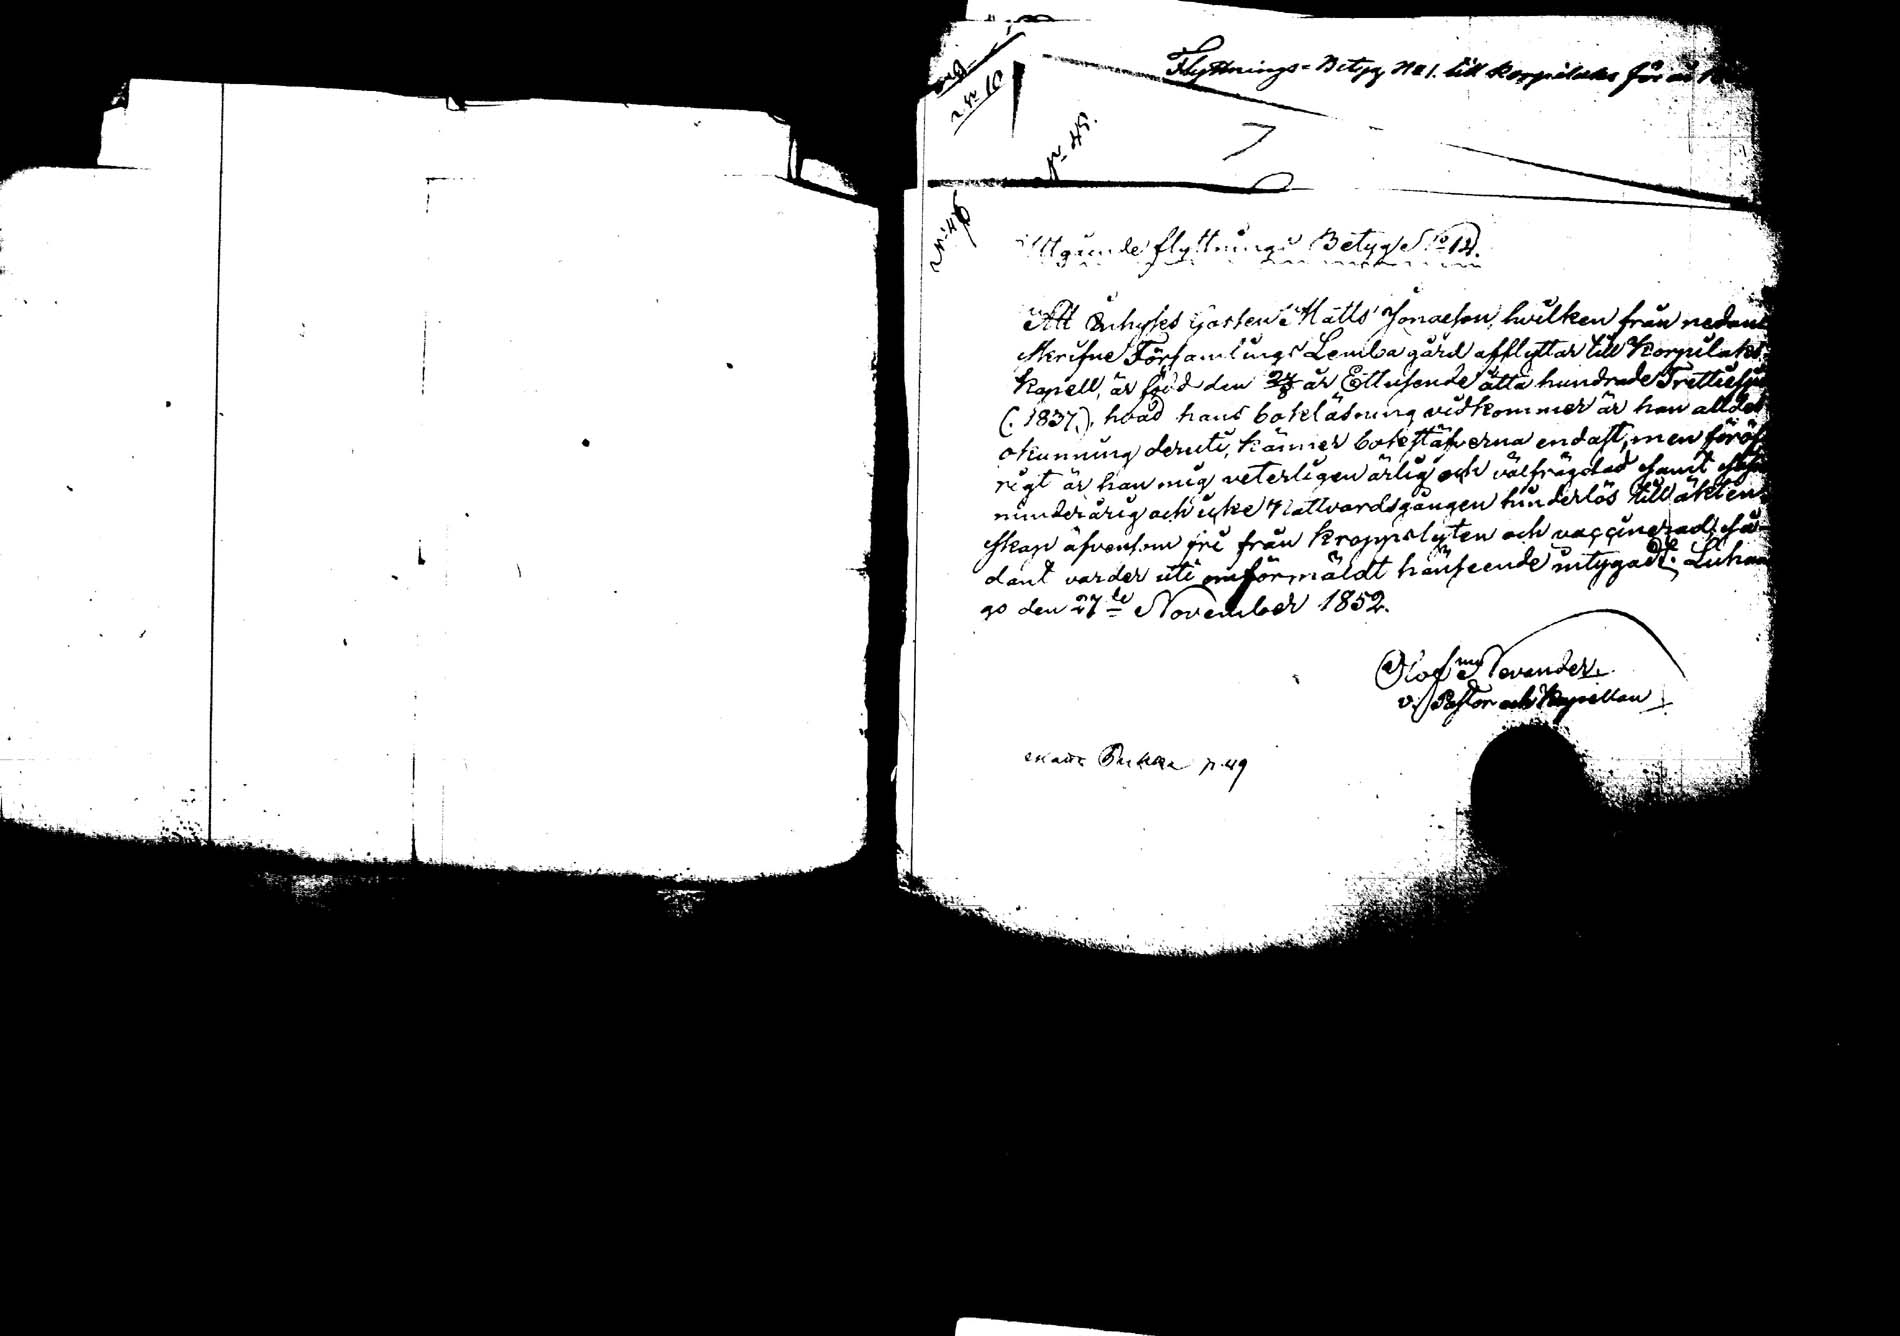 Flyttnings-Betyg No 1. till Korpilaks för år
No 10
No 48.
No 46
Utgående flyttnings Betyg No 12.
Att Inhyses Gossen Matts Jonaeson, hvilken från nedan
skrifne Församlings Lemba gård afflyttar till Korpilaks
Kapell, är född den 24/8 år Ettusende åtta hundrade Trettiesju
(:1837:), hvad hans bokläsning vidkommer är han alldel
okunning deruti, känner bokstäfverna endast, men föröf
rigt är han mig veterligen ärlig och välfrägdad samt
minderårig och icke Nattvardsgången hinderlös till äkten-
skap äfvensom fri från kroppslyten och vaccinerad; så-
dant varder uti omförmäldt hänseende intygadt. Luhan
go den 27de November 1852.
Olof Nevander.
v. Pastor och Kapellan
p. 49